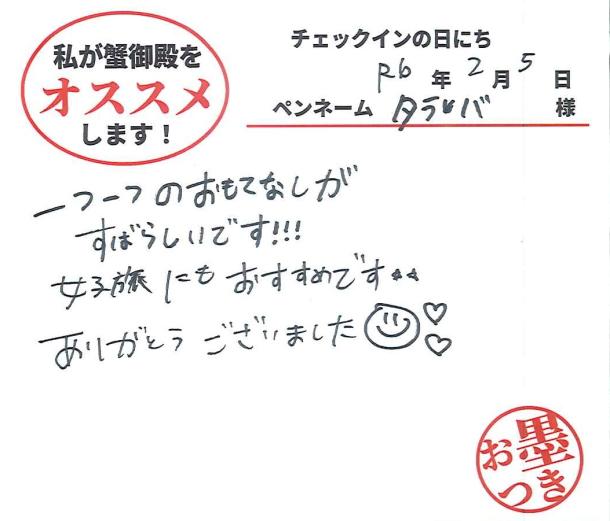 私が蟹御殿を
オススメ
します！
チェックインの日にち
R6年2月5日
ペンネーム タラバ 様
一つ一つのおもてなしが
すばらしいです!!!
女子旅にもおすすめです★★
ありがとうございました☺♡♡
お墨
つき